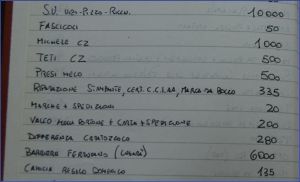 S.V. VIBO-PIZZO-ROCC. 10000
FASCICOLI 50
MICHELE CZ 1000
TETI CZ 500
PRESI MECO 500
RIPARAZIONE STAMPANTE, CERT. C.C.I.AA, MARCA DA BOLLO 335
MARCHE + SPEDIZIONI 20
VALCO + CARTA + SPEDIZIONE 200
DIFFERENZA CATANZARO 280
BARRIERE FERROVIARIO 6000
CAMICIA REGALO DOMENICO 135